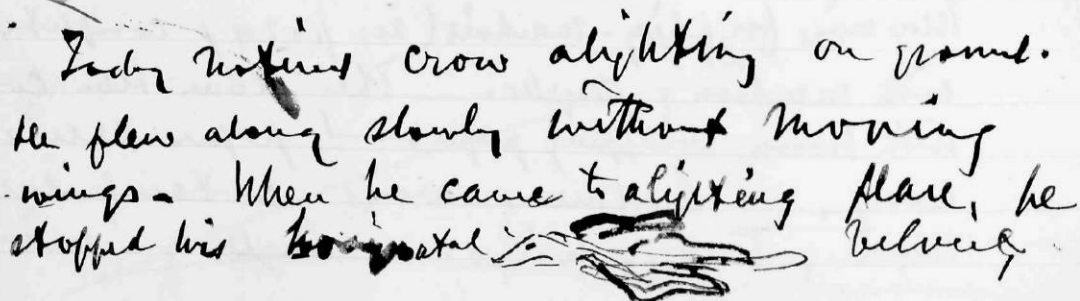 Today noticed crow alighting on ground.
He flew along slowly without moving
wings. When he came to alighting place, he
stopped his horizontal velocity